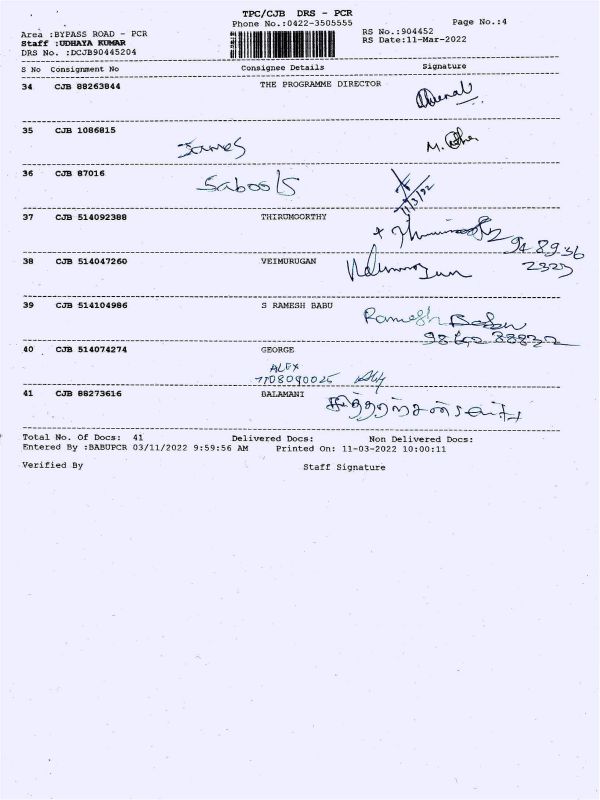 TPC/CJB DRS - PCR
Phone No.:0422-3505555
Page No.:4
Area :BYPASS ROAD - PCR
RS No.:904452
Staff :UDHAYA KUMAR
RS Date:11-Mar-2022
DRS No. :DCJB90445204
S No Consignment No Consignee Details Signature
34 CJB 88263844 THE PROGRAMME DIRECTOR
35 CJB 1086815
James
36 CJB 87016
11/3/22
37 CJB 514092388 THIRUMOORTHY
38 CJB 514047260 VEIMURUGAN
39 CJB 514104986 S RAMESH BABU
Ramesh Babu
40 CJB 514074274 GEORGE
ALEX
7708090025
41 CJB 88273616 BALAMANI
Total No. Of Docs: 41 Delivered Docs: Non Delivered Docs:
Entered By :BABUPCR 03/11/2022 9:59:56 AM Printed On: 11-03-2022 10:00:11
Verified By Staff Signature